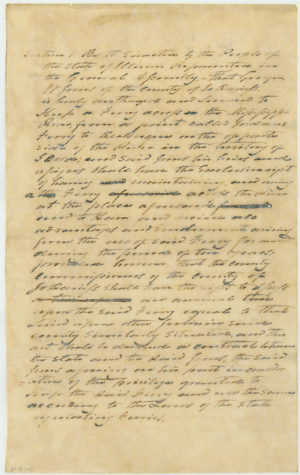 Section 1. Be it Enacted by the People of
the State of Illinois Represented in
the General Assembly, That George
W Jones of the County of Jo Daviess,
is hereby authorized and licensed to
Keep a Ferry across the Mississippi
River from a point called Jordans
Ferry to Dubuque on the opposite
side of the River in the Territory of
Iowa; and Said Jones his heirs and
assigns shall have the Exclusive right
of having maintaining and using
Ferry across the River
at the place aforesaid
and to Have and receive all
advantages and Emoluments arising
from the use of Said Ferry for and
during the period of ten years
provided however that the county
commissioners of the county of
Jo Daviess shall have the right to assess
an annual tax
upon the Said Ferry equal to that
levied upon other ferries in said
county Similarly Situated, and this
act shall be deemed a contract between
the State and the Said Jones, the Said
Jones agreeing on his part in consider
ation of the privilege granted to
keep the Said Ferry and use the same
according to the Laws of the State
regulating Ferries.